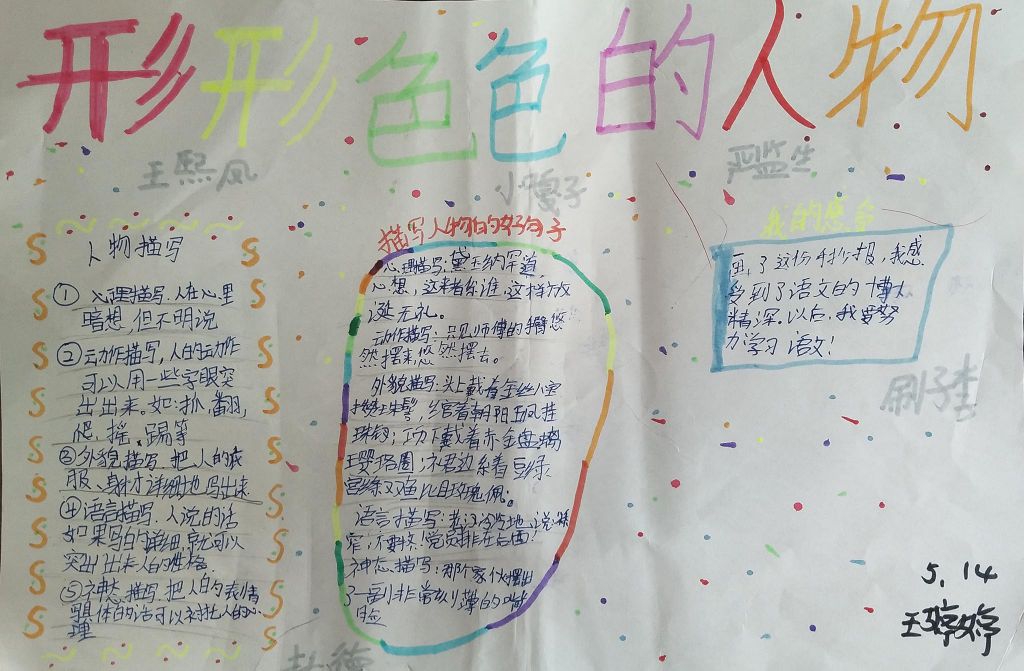 形形色色的人物
王熙凤
小嘎子
严监生
人物描写
① 心理描写.人在心里
暗想,但不明说
② 动作描写,人的动作
可以用一些字眼突
出出来。如:抓,翻,
爬、摇、踢等
③外貌描写.把人的衣
服、身材详细地写出来
④语言描写.人说的话
如果写的详细,就可以
突出出来人的性格.
⑤神态描写.把人的表情
具体的话可以衬托人的心
理
描写人物的好句子
心理描写:黛玉纳罕道
心想,这来者是谁,这样放
诞无礼。
动作描写:只见师傅的手臂悠
然摆来,悠然摆去。
外貌描写:头上戴着金丝八宝
攒珠髻,绾着朝阳五凤挂
珠钗;项下戴着赤金盘螭
璎珞圈;裙边系着豆绿
宫绦双鱼比目玫瑰佩。
语言描写:老汉冷冷地说:桥
窄,不要挤!党员排在后面!
神态描写:那个家伙摆出
了一副非常刻薄的嘴
脸
我的感
画了这份手抄报,我感
受到了语文的博大
精深.以后,我要努
力学习语文!
刷子李
5.14
王婷婷